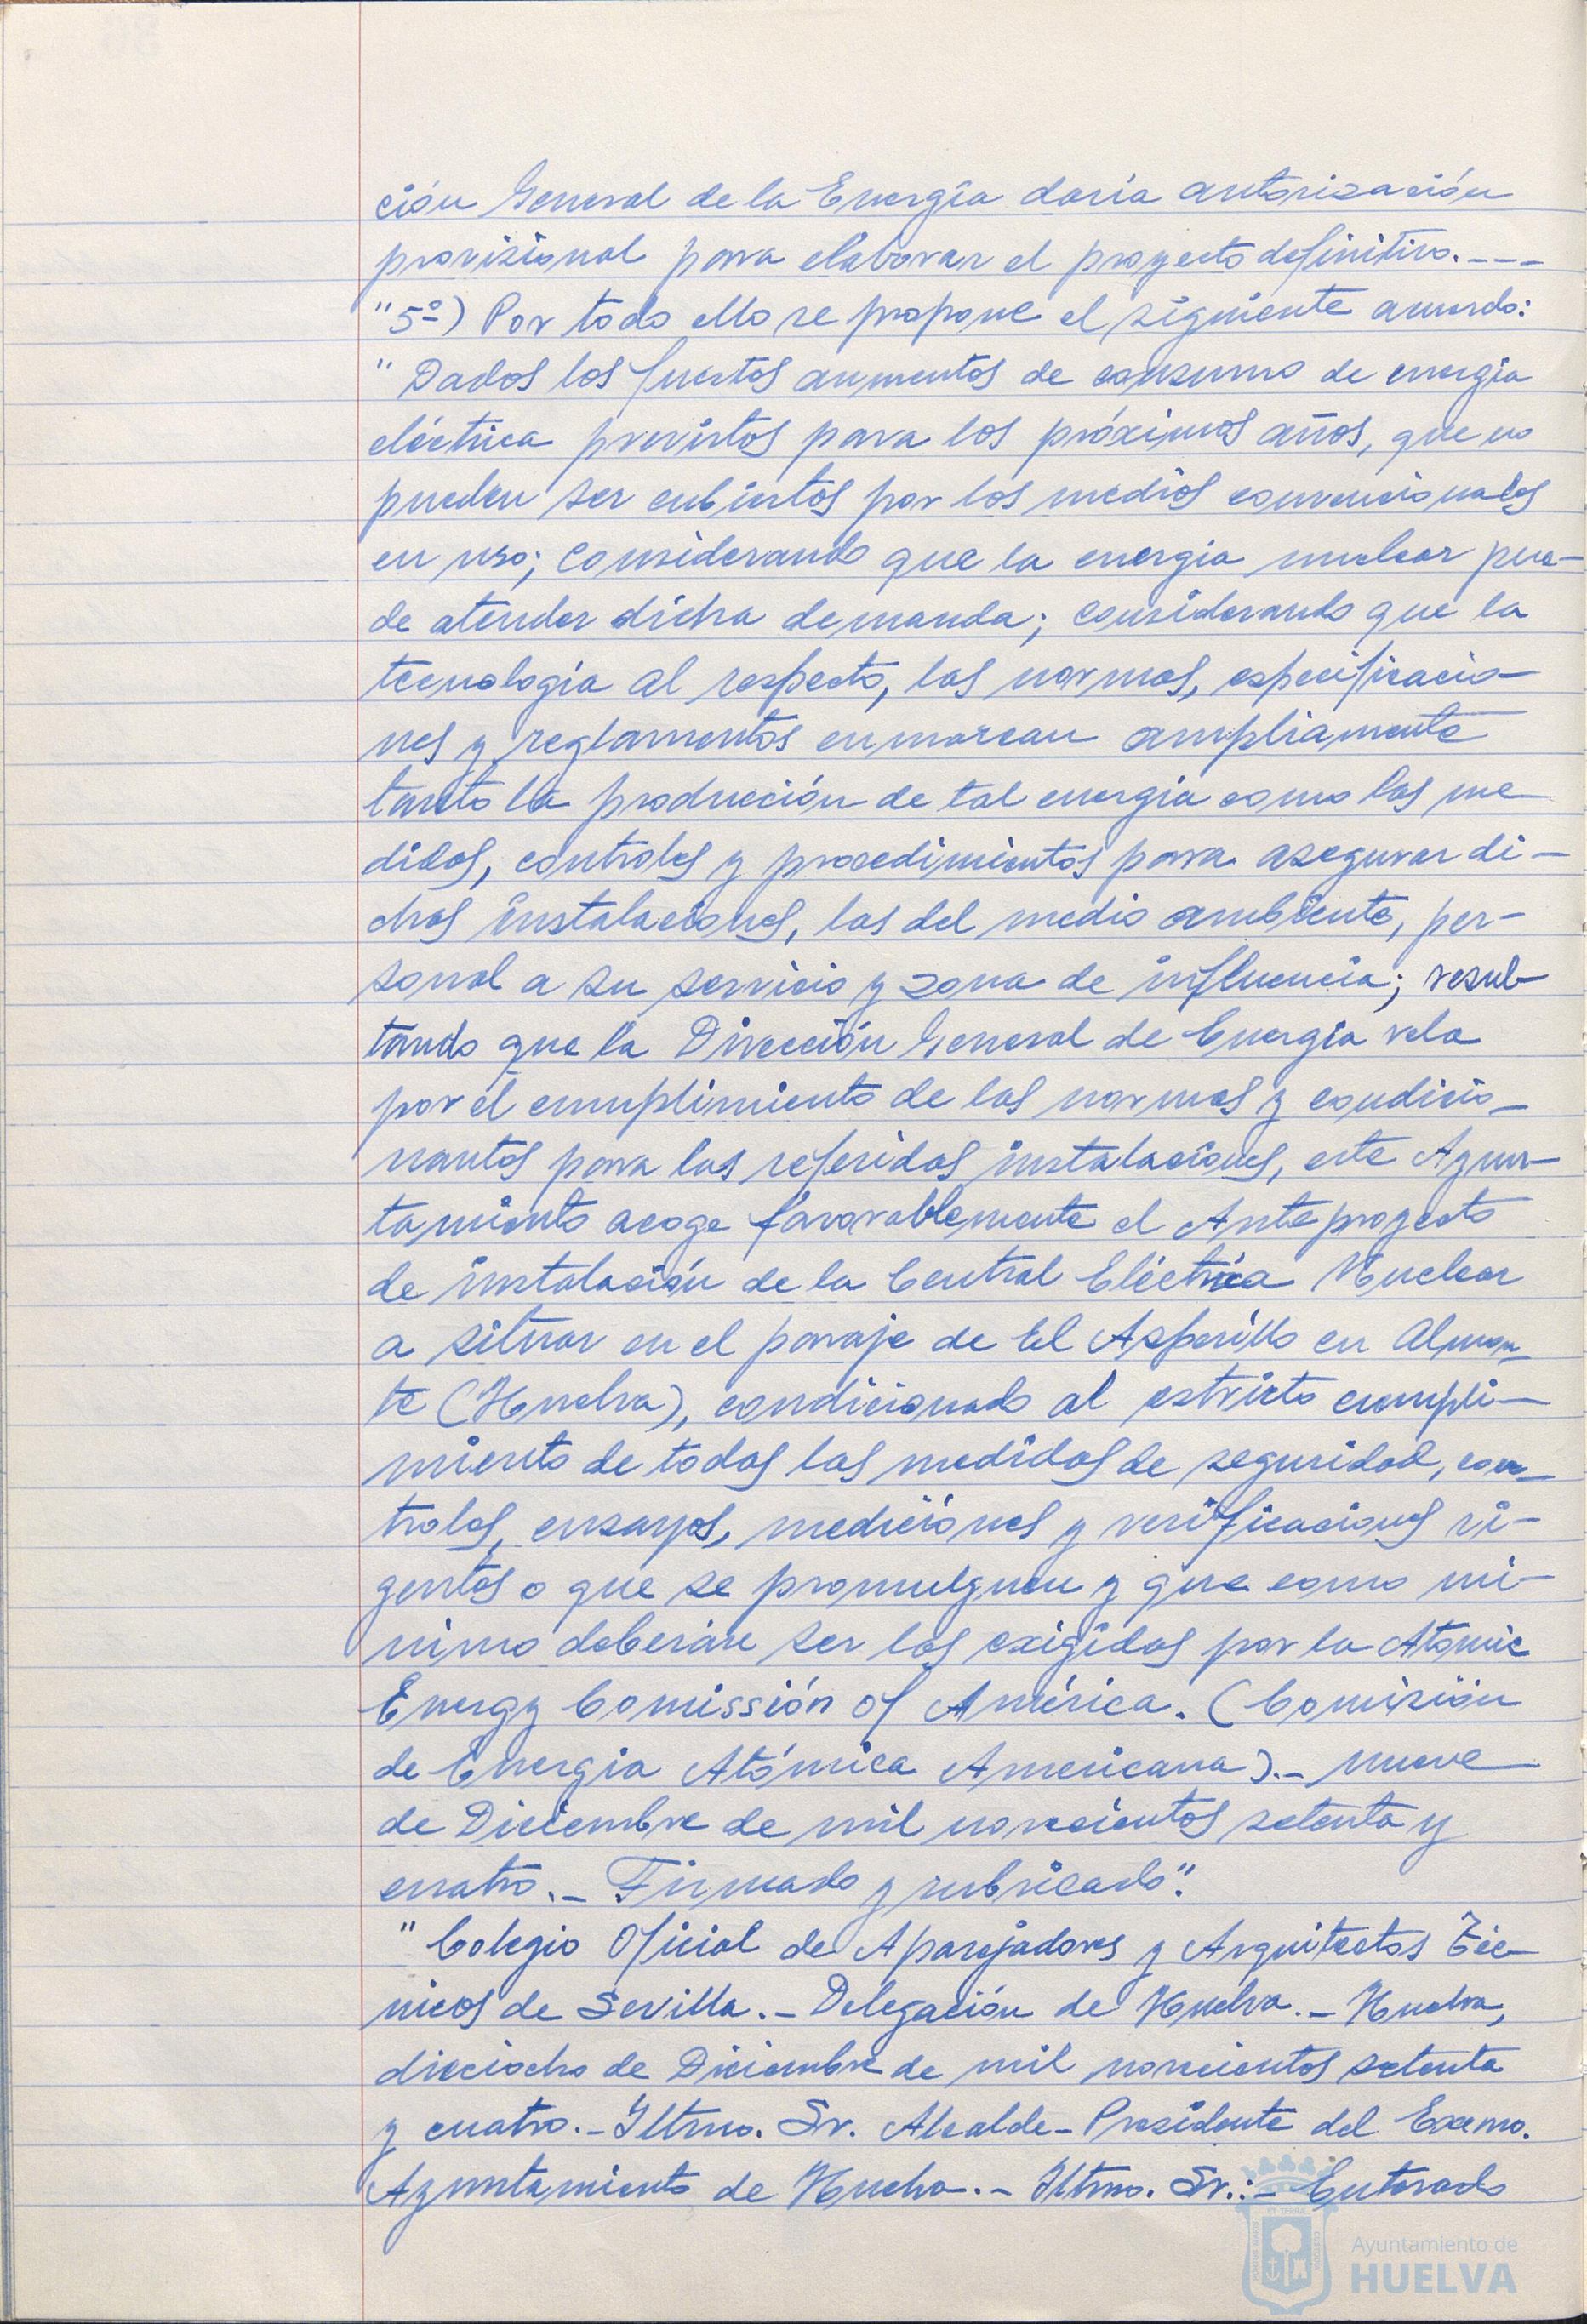 ción General de la Energía daría autorización
provisional para elaborar el proyecto definitivo.----
"5º) Por todo ello se propone el siguiente acuerdo:
" Dados los fuertes aumentos de consumo de energia
eléctrica previstos para los próximos años, que no
pueden ser cubiertos por los medios convencionales
en uso; considerando que la energia nuclear pue-
de atender dicha demanda; considerando que la
tecnología al respecto, las normas, especificacio-
nes y reglamentos enmarcan ampliamente
tanto la producción de tal energía como las me
didas, controles y procedimientos para asegurar di-
chas instalaciones, las del medio ambiente, per-
sonal a su servicio y zona de influencia; resul-
tando que la Dirección General de Energía vela
por el cumplimiento de las normas y condicio-
nantes para las referidas instalaciones, este Ayun-
tamiento acoge favorablemente el Anteproyecto
de instalación de la Central Eléctrica Nuclear
a situar en el paraje de El Asperillo en Almon-
te (Huelva), condicionado al estricto cumpli-
miento de todas las medidas de seguridad, con-
troles, ensayos, mediciones y verificaciones vi-
gentes o que se promulguen y que como mí-
nimo deberán ser las exigidas por la Atomic
Energy Comissión of América. (Comisión
de Energia Atómica Americana).- nueve
de Diciembre de mil novecientos setenta y
cuatro.- Firmado y rubricado".
" Colegio Oficial de Aparejadores y Arquitectos Téc-
nicos de Sevilla.- Delegación de Huelva.- Huelva,
dieciocho de Diciembre de mil novecientos setenta
y cuatro.- Iltmo. Sr. Alcalde-Presidente del Excmo.
Ayuntamiento de Huelva.- Iltmo. Sr.:- Enterado
Ayuntamiento de
HUELVA